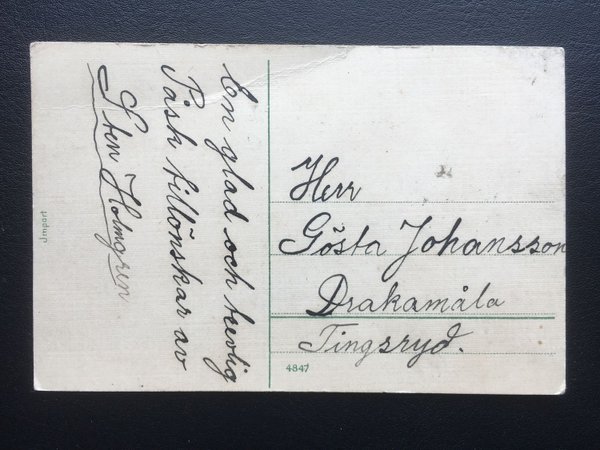 En glad och trevlig
Påsk tillönskar av
Sten Holmgren
Herr
Gösta Johansson
Drakamåla
Tingsryd.
4847
Import